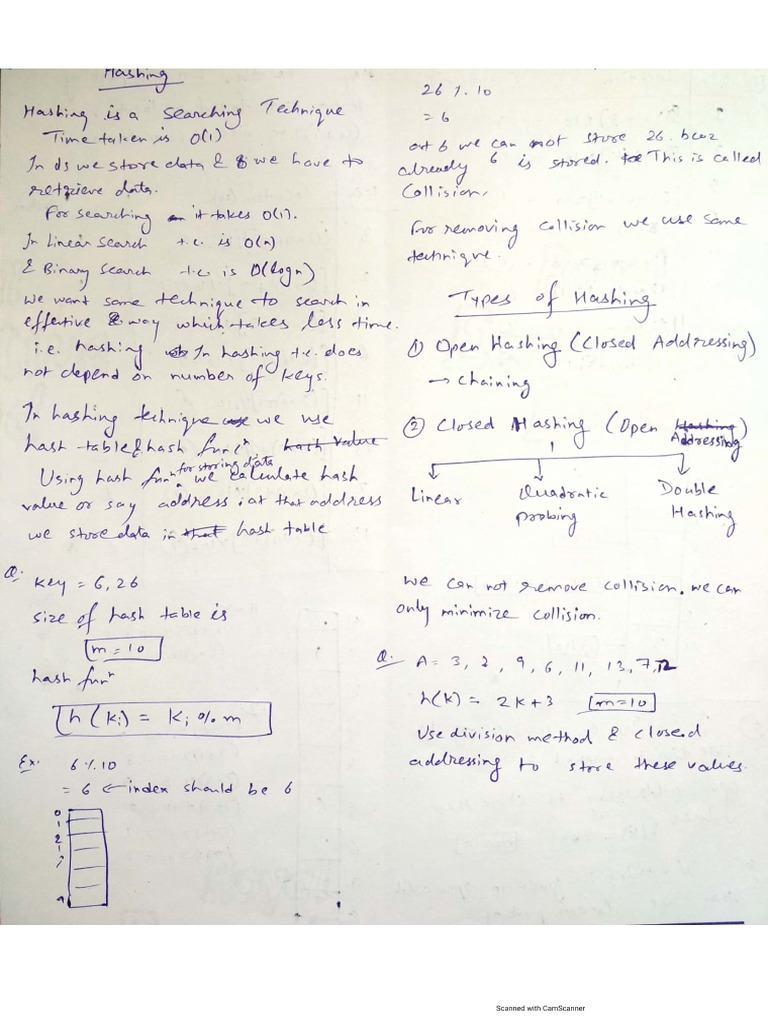 Hashing
Hashing is a searching Technique
Time taken is O(1)
In ds we store data & we have to
retrieve data.
For searching it takes O(1).
In Linear search t.c. is O(n)
& Binary search t.c. is O(logn)
we want some technique to search in
effective way which takes less time.
i.e. hashing In hashing t.c. does
not depend on number of keys.
In hashing technique we use
hash table & hash funcⁿ hash value
for storing data
Using hash funⁿ we calculate hash
value or say address i at that address
we store data in that hash table
Q. Key = 6, 26
size of hash table is
m = 10
hash funⁿ
h (ki) = Ki % m
Ex. 6 % 10
= 6 ← index should be 6
0
1
2
9
26 % 10
= 6
at 6 we can not store 26. bcoz
already 6 is stored. This is called
Collision.
For removing collision we use some
technique.
Types of Hashing
① Open Hashing (Closed Addressing)
→ Chaining
② Closed Hashing (Open Hashing)
Addressing
Linear
Quadratic
probing
Double
Hashing
we can not remove collision. we can
only minimize collision.
Q. A = 3, 2, 9, 6, 11, 13, 7, 12
h(k) = 2k+3 m=10
Use division method & closed
addressing to store these values.
Scanned with CamScanner